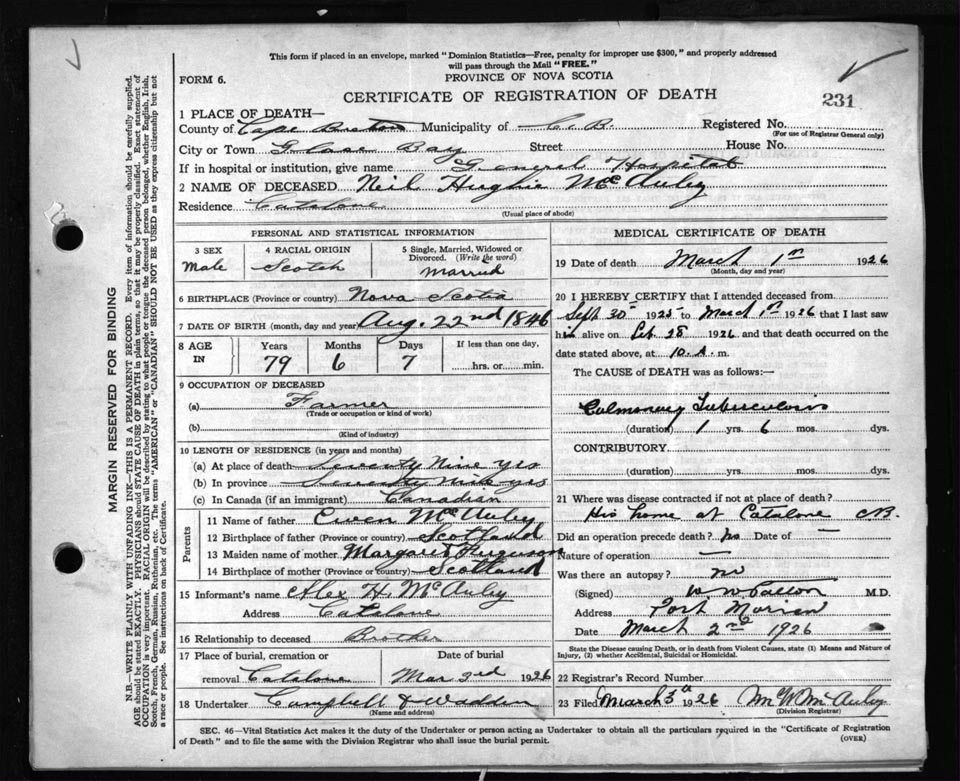 This form if placed in an envelope, marked "Dominion Statistics—Free, penalty for improper use $300," and properly addressed
will pass through the Mail "FREE."
FORM 6.
PROVINCE OF NOVA SCOTIA
CERTIFICATE OF REGISTRATION OF DEATH
231
1 PLACE OF DEATH—
County of Cape Breton Municipality of C. B. Registered No.
(For use of Registrar General only)
City or Town Glace Bay Street House No.
If in hospital or institution, give name General Hospital
2 NAME OF DECEASED Neil Hughie McAuley
Residence Catalone
(Usual place of abode)
PERSONAL AND STATISTICAL INFORMATION
3 SEX
Male
4 RACIAL ORIGIN
Scotch
5 Single, Married, Widowed or
Divorced. (Write the word)
Married
6 BIRTHPLACE (Province or country) Nova Scotia
7 DATE OF BIRTH (month, day and year) Aug. 22nd 1846
8 AGE
IN
Years
79
Months
6
Days
7
If less than one day,
hrs. or min.
9 OCCUPATION OF DECEASED
(a) Farmer
(Trade or occupation or kind of work)
(b)
(Kind of industry)
10 LENGTH OF RESIDENCE (in years and months)
(a) At place of death Seventy Nine yrs
(b) In province Seventy Nine yrs
(c) In Canada (if an immigrant) Canadian
Parents
11 Name of father Ewen McAuley
12 Birthplace of father (Province or country) Scotland
13 Maiden name of mother Margaret Ferguson
14 Birthplace of mother (Province or country) Scotland
15 Informant's name Alex H. McAuley
Address Catalone
16 Relationship to deceased Brother
17 Place of burial, cremation or
removal Catalone
Date of burial
Mar 3rd 1926
18 Undertaker Campbell & Wadden
(Name and address)
MEDICAL CERTIFICATE OF DEATH
19 Date of death March 1st 1926
(Month, day and year)
20 I HEREBY CERTIFY that I attended deceased from
Sept 30th 1925 to March 1st 1926 that I last saw
him alive on Feb 28 1926 and that death occurred on
the date stated above, at 10. A. m.
The CAUSE of DEATH was as follows:—
Pulmonary Tuberculosis
(duration) 1 yrs. 6 mos. dys.
CONTRIBUTORY
(duration) yrs. mos. dys.
21 Where was disease contracted if not at place of death?
His home at Catalone CB.
Did an operation precede death? No Date of —
Nature of operation —
Was there an autopsy? no
(Signed) W. W. Patton M.D.
Address Port Morien
Date March 2nd 1926
State the Disease causing Death, or in death from Violent Causes, state (1) Means and Nature of
Injury, (2) whether Accidental, Suicidal or Homicidal.
22 Registrar's Record Number
23 Filed March 5th 1926 McAuley
(Division Registrar)
SEC. 46—Vital Statistics Act makes it the duty of the Undertaker or person acting as Undertaker to obtain all the particulars required in the "Certificate of Registration
of Death" and to file the same with the Division Registrar who shall issue the burial permit.
(OVER)
MARGIN RESERVED FOR BINDING
N.B.—WRITE PLAINLY WITH UNFADING INK—THIS IS A PERMANENT RECORD. Every item of information should be carefully supplied.
AGE should be stated EXACTLY. PHYSICIANS should STATE CAUSE OF DEATH in plain terms, so that it may be properly classified. Exact statement of
OCCUPATION is very important. RACIAL ORIGIN will be described by stating to what people or tongue the deceased person belonged, whether English, Irish,
Scotch, French, German, Russian, Ruthenian, etc. The terms "AMERICAN" or "CANADIAN" SHOULD NOT BE USED as they express citizenship but not
a race or people. See instructions on back of Certificate.